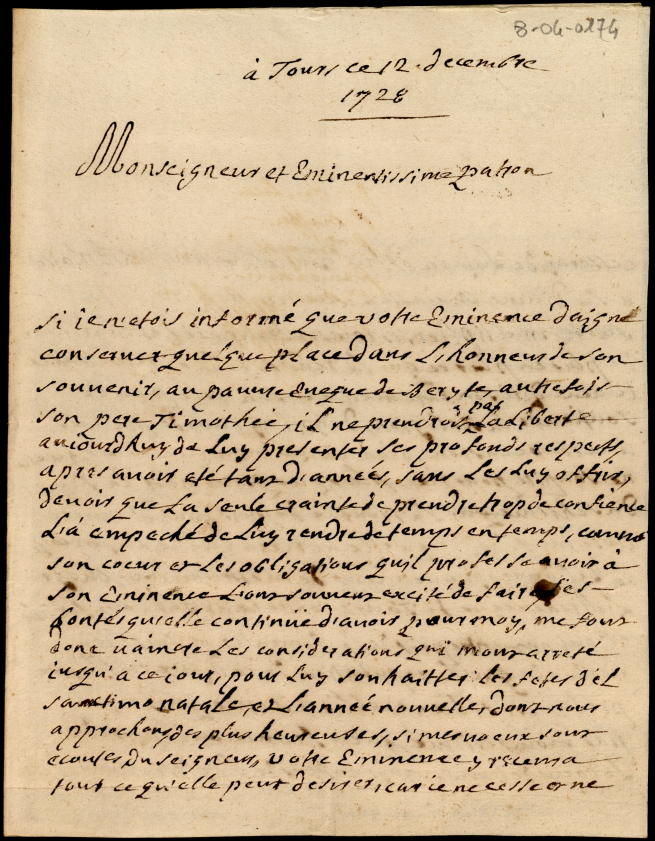 8-04-0174
à Tours ce 12. decembre
1728
Monseigneur et Eminentissime patron
si ie n'etois informé que votre Eminence daigne
conserver quelque place dans L'honneur de son
souvenir, au pauvre Eveque de Beryte, autrefois
son pere Timothée, il ne prendroit pas La Liberté
aujourdhuy de Luy presenter ses profonds respects,
apres avoir eté tant d'années, sans Les Luy offrir,
devoir que La seule crainte de prendre trop de confience
L'a empeché de Luy rendre de temps en temps, comme
son coeur et Les obligations qu'il professe avoir à
son Eminence L'ont souvent excité de faire, les
bontés qu'elle continüe d'avoir pour moy, me font
donc vaincre Les considerations qui m'ont arreté
iusqu'a ce iour, pour Luy souhaitter les fetes del
santissimo natale, et L'année nouvelle, dont nous
approchons des plus heureuses, si mes voeux sont
ecoutés du seigneur, votre Eminence y recevra
tout ce qu'elle peut desirer, car ie ne cesse ne